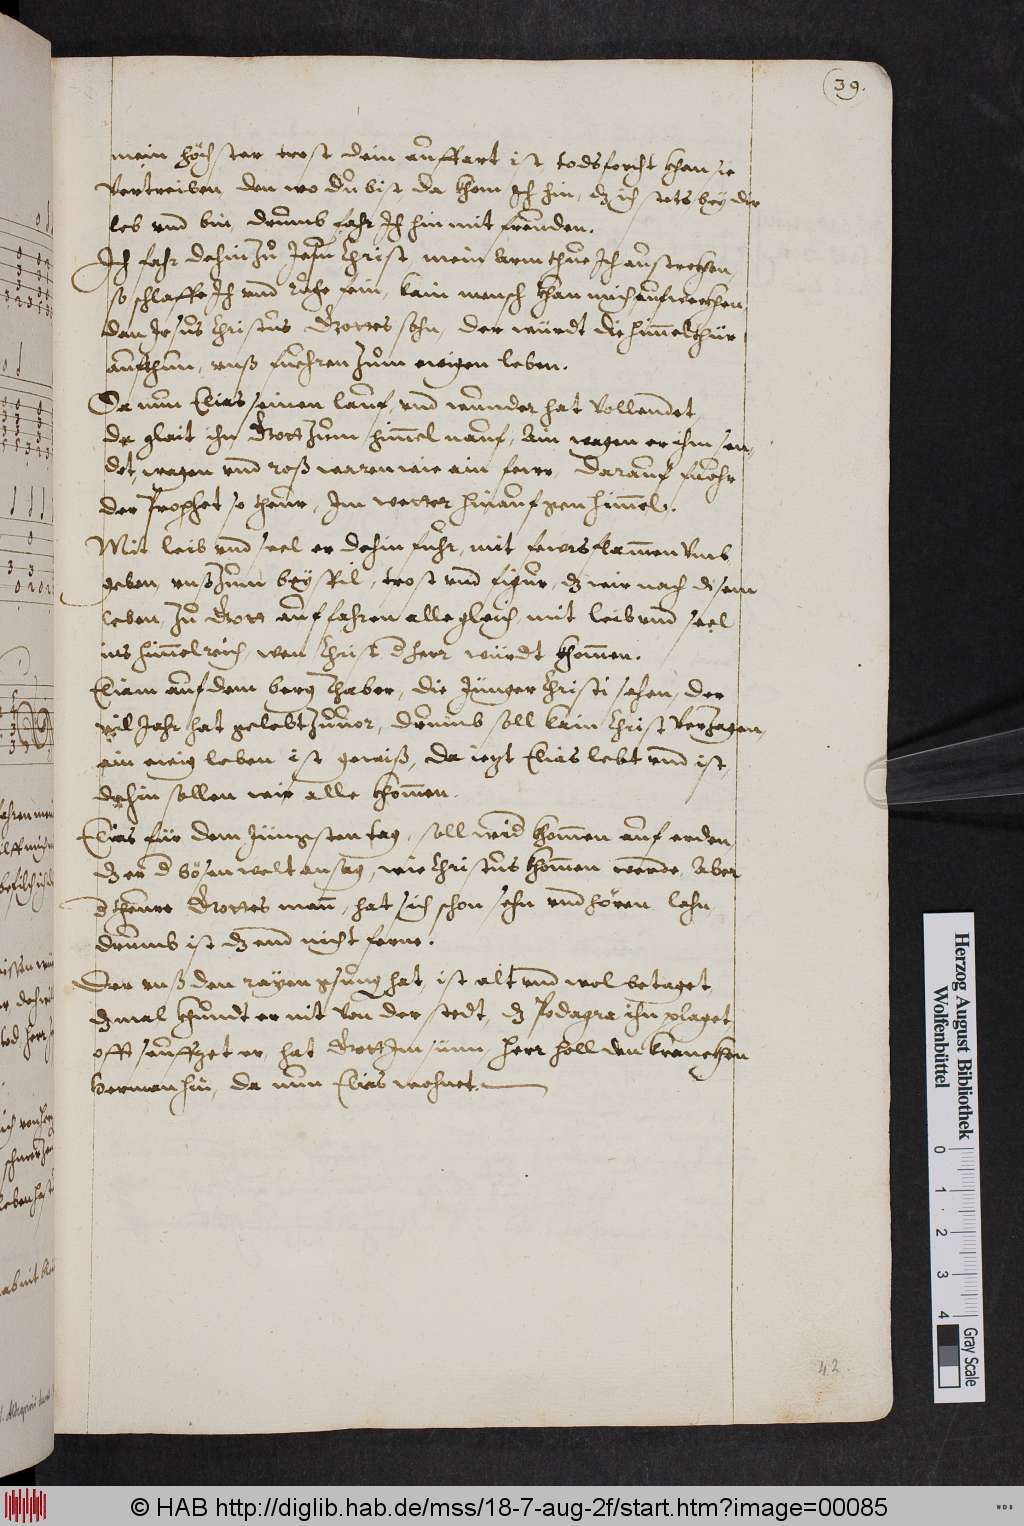 39.
mein höchster trost dein auffart ist todsforcht khan sie
vertreiben, den wo du bist, da khom Ich hin, dz ich stets bey dir
leb vnd bin, drumb fahr Ich hin mit freuden.
Ich fahr dahin zu Jesu Christ, mein arm thue Ich austrekhen,
so schlaffe Ich vnd ruhe fein, kain mensch khan mich aufwekhen,
den Jesus Christus Gottes sohn, der würdt die himelthür
aufthun, vnß füehren zum ewigen leben.
Da nun Elias seinen lauf vnd wunder hat vollendet,
da glait ihn Gott zum himel nauf, Ain wagen er ihm sen,
det, wagen vnd roß waren wie ain fewr, darauf fuehr
der Prophet so theur, Im wetter hinauf gen himel.
Mit leib vnd seel er dahin fuhr, mit fewrsflamen vmb
geben, vnß zum beyspil, trost vnd figur, dz wir nach disem
leben, zu Gott auffahren alle gleich, mit leib vnd seel
ins himelreich, wen Christ d herr würdt khomen.
Eliam auf dem berg Thabor, die Jünger Christi sahen, der
vil Jahr hat gelebt zuuor, drumb soll kain Christ verzagen,
ain ewig leben ist gewiß, da iezt Elias lebt vnd ist,
dahin sollen wir alle khomen.
Elias für dem Jüngsten tag, soll wid khomen auf erden,
dz er d bösen welt ansag, wie Christus khomen werde, Aber
d theure Gottes man, hat sich schon sehn vnd hören lahn
drumb ist dz end nicht ferne.
Der vnß den rayen gsung hat, ist alt vnd wol betaget,
dzmal khundt er nit von der stedt, dz Podagra ihn plaget
offt seuffzet er, hat Gott Im sinn, herr holl den krancken
herman hin, da nun Elias wohnet.
42
Herzog August Bibliothek
Wolfenbüttel
0 1 2 3 4
Gray Scale
© HAB http://diglib.hab.de/mss/18-7-aug-2f/start.htm?image=00085